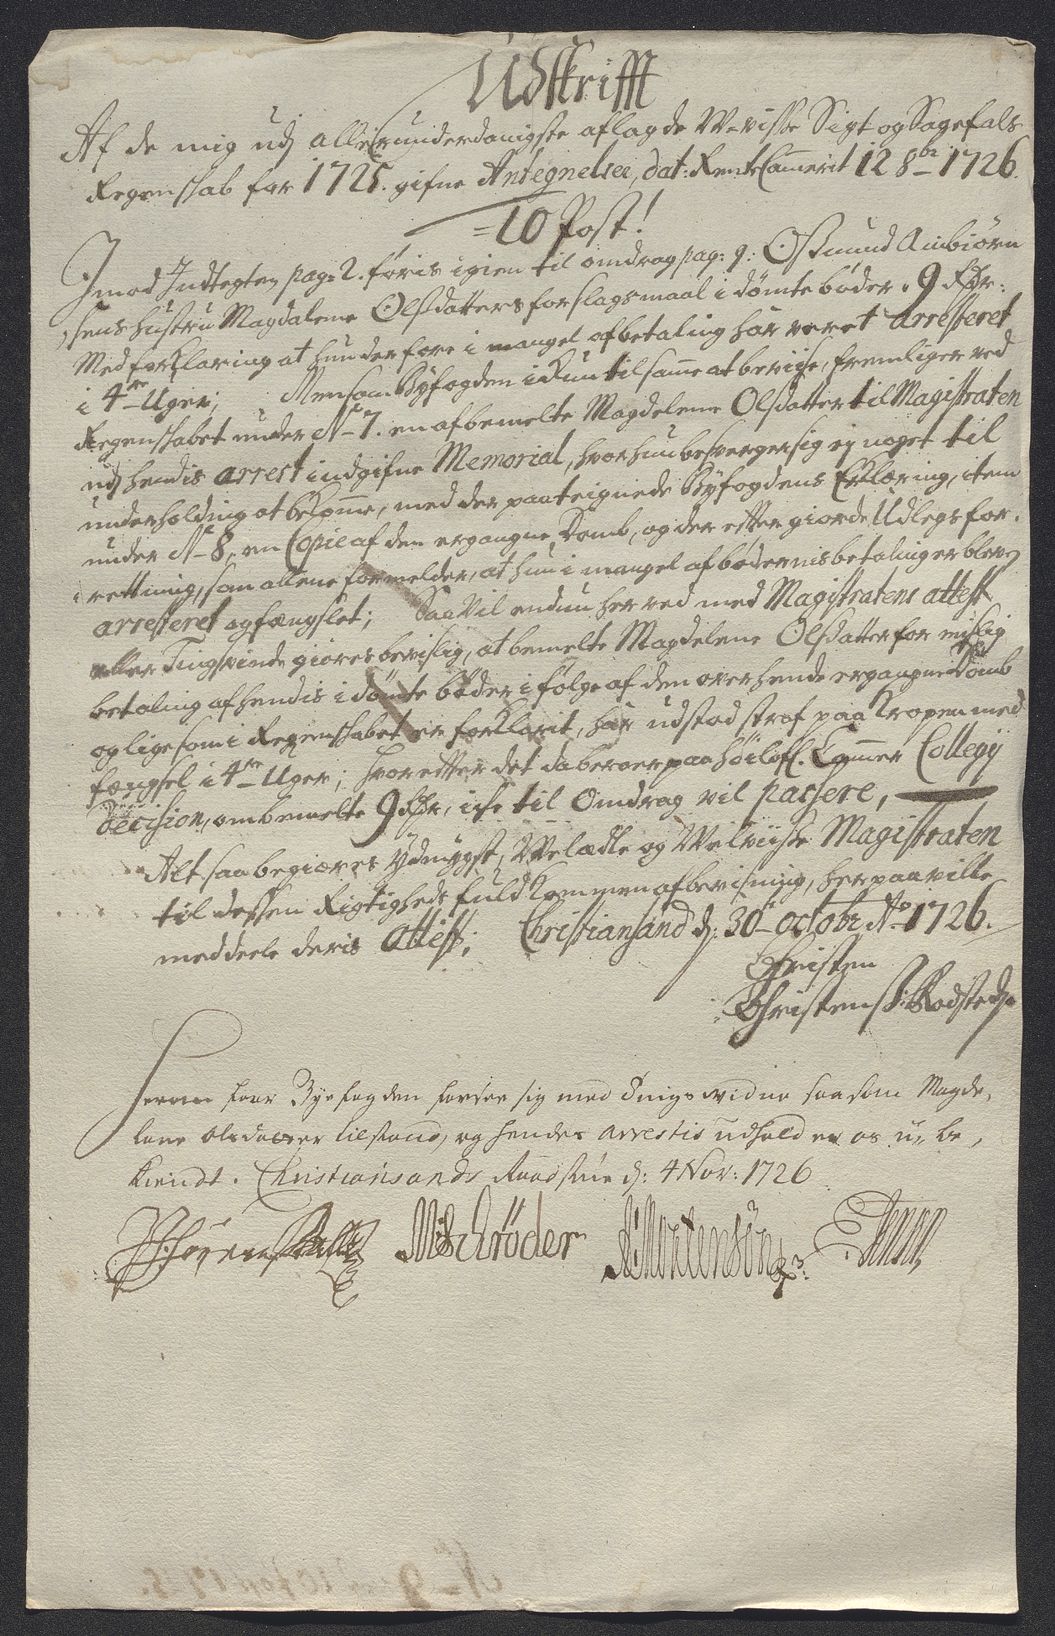 Udskrifft
Af de mig udj allerunderdanigste aflagde Wevisse Sigt og Sagefals
Regenskab for 1725. gifne Antegnelser, dat: RenteCammerit 12 8br 1726.
10 Post!
Imod Indtegten pag: 2. føris igien til omdrag pag: 9: Osmund Anbiørn
sens hustru Magdalene Olsdatters for slagsmaal i dømte bøder 9 Rdr:
Med forklaring at hun derfore i mangel af betaling har veret arresteret
i 4re Uger; Men som Byfogden ickun til samme at bevise, fremligger ved
Regenskabet under No 7. en af bemelte Magdelene Olsdatter til Magistraten
udj hendis arrest indgifne Memorial, hvor hun besverger sig ej noget til
underholding at bekomme, med der paa teignede Byfogdens Erklæring, item
under No 8, en Copie af den ergangne Domb, og der efter giorde Udlegs for-
rettning, som allene formelder, at hun i mangel af bødernis betaling er blev
arresteret og fængslet; Saa vil endnu her ved med Magistratens attest
eller Tingsvinde giøres bevislig, at bemelte Magdelene Olsdatter for mislig
betaling af hendis i dømte bøder i følge af den over hende ergangne Domb
og lige som i Regenskabet er forklarit, har udstod straf paa Kropen med
fængsel i 4re Uger; hvor efter det da beroer paa høilofl. Cammer Collegij
decision, om bemelte 9 Rdr, icke til Omdrag vil passere,
Alt saa begiæres ydmygst, Welædle og Welviise Magistraten
til dessen Rigtigheds fuldkommen afbevisning, her paa ville
meddeele deris attest; Christiansand d: 30 octobr Ao 1726.
Christen
Christens: Rodsted
Herom faar Byefogden forsee sig med Tings vidne saasom Magde-
lene Olsdatter tilstand, og hendes arrestis udhold er os u-be-
kiendt. Christiansands Raadstue d: 4 Nov: 1726
M Schrøder
Mortensøn